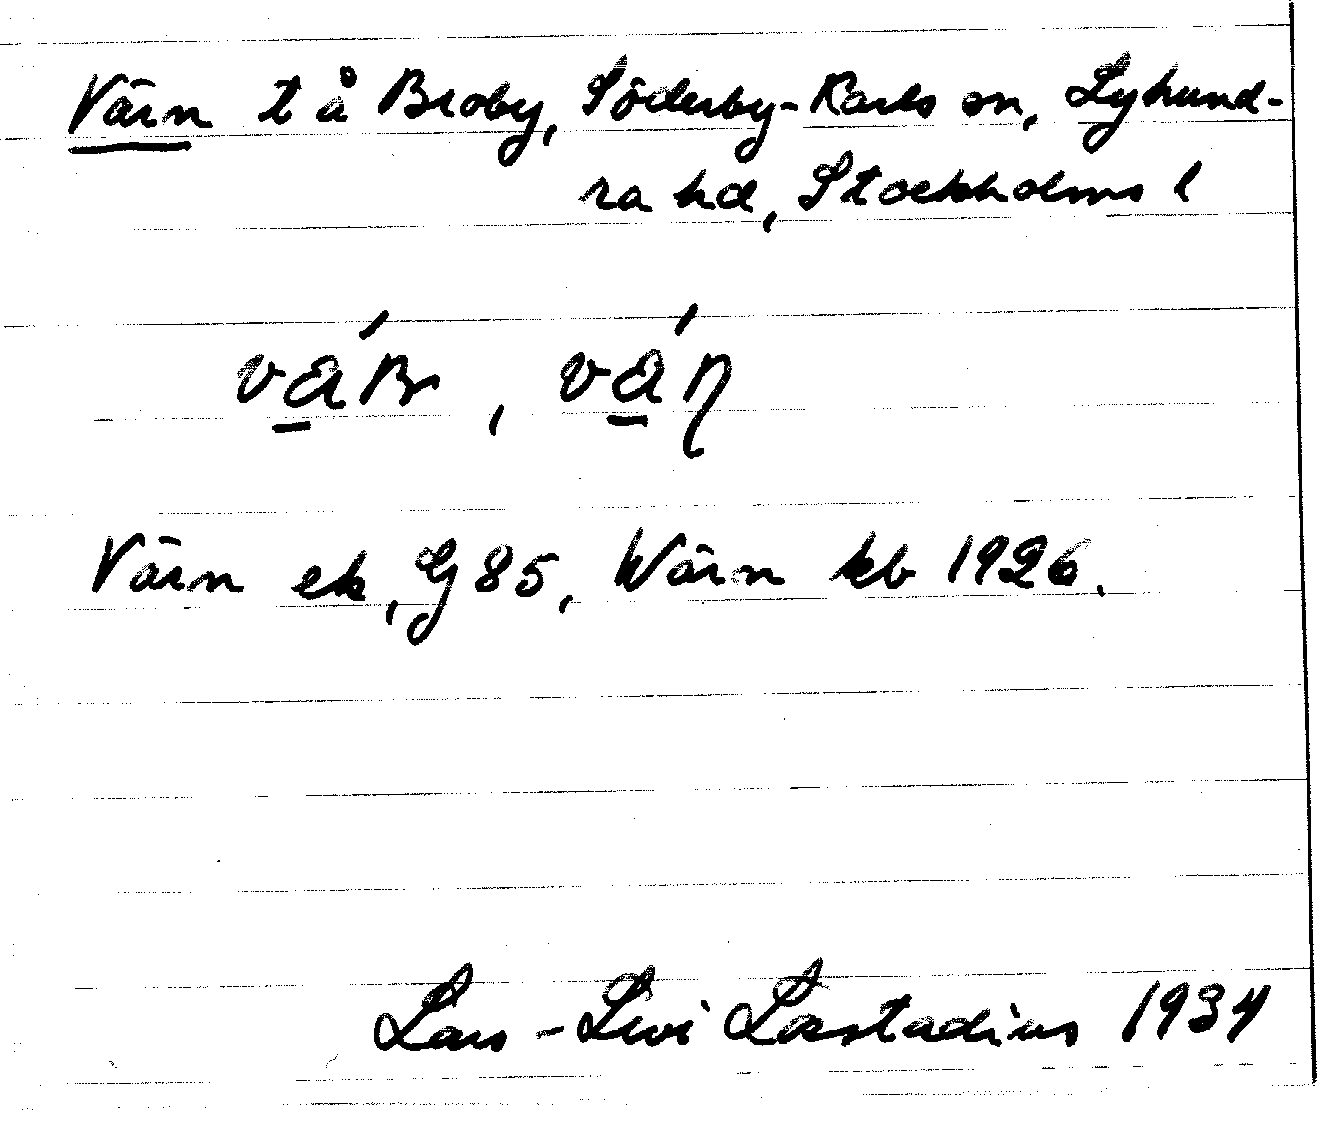 Värn t å Broby, Söderby-Karls sn, Lyhund-
ra hd, Stockholms l
Värn ek, G 85, Wärn kb 1926.
Lars-Levi Læstadius 1934